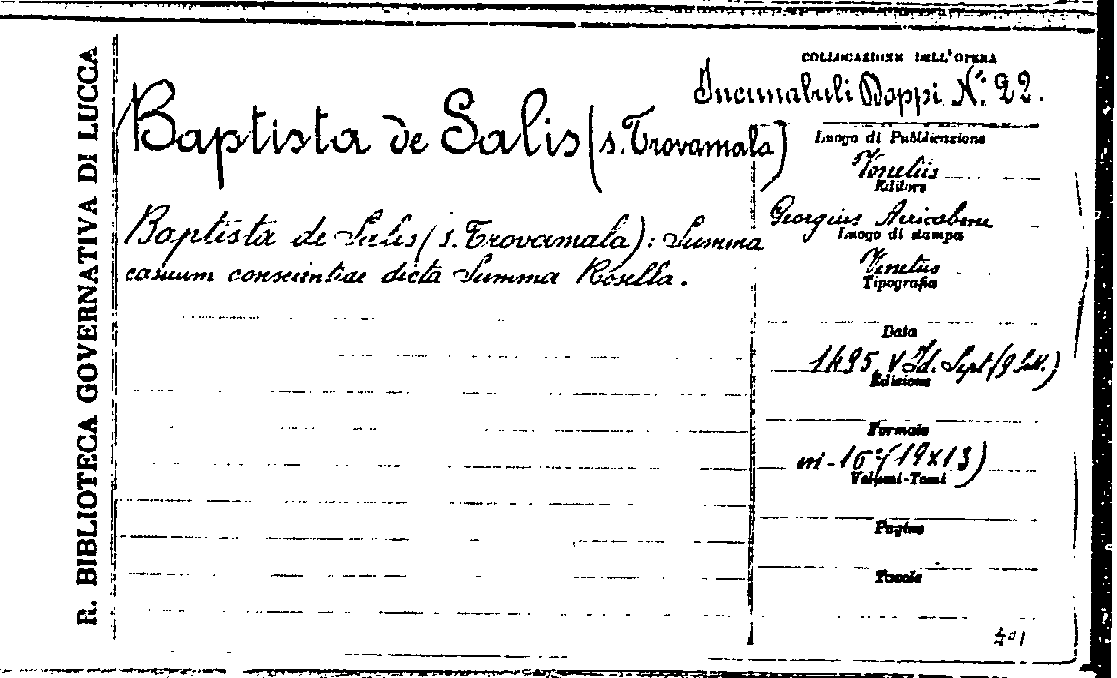 R. BIBLIOTECA GOVERNATIVA DI LUCCA
COLLOCAZIONE DELL'OPERA
Incunabuli Doppi N.º 22.
Baptista de Salis (s. Trovamala)
Baptista de Salis (s. Trovamala): Summa
casuum conscientiae dicta Summa Rosella.
Luogo di Pubblicazione
Venetiis
Editore
Georgius
Luogo di stampa
Venetiis
Tipografia
Data
1495, V Id. Sept. (9 Sett.)
Edizione
Formato
in-16º (19x13)
Volumi-Tomi
Pagine
Tavole